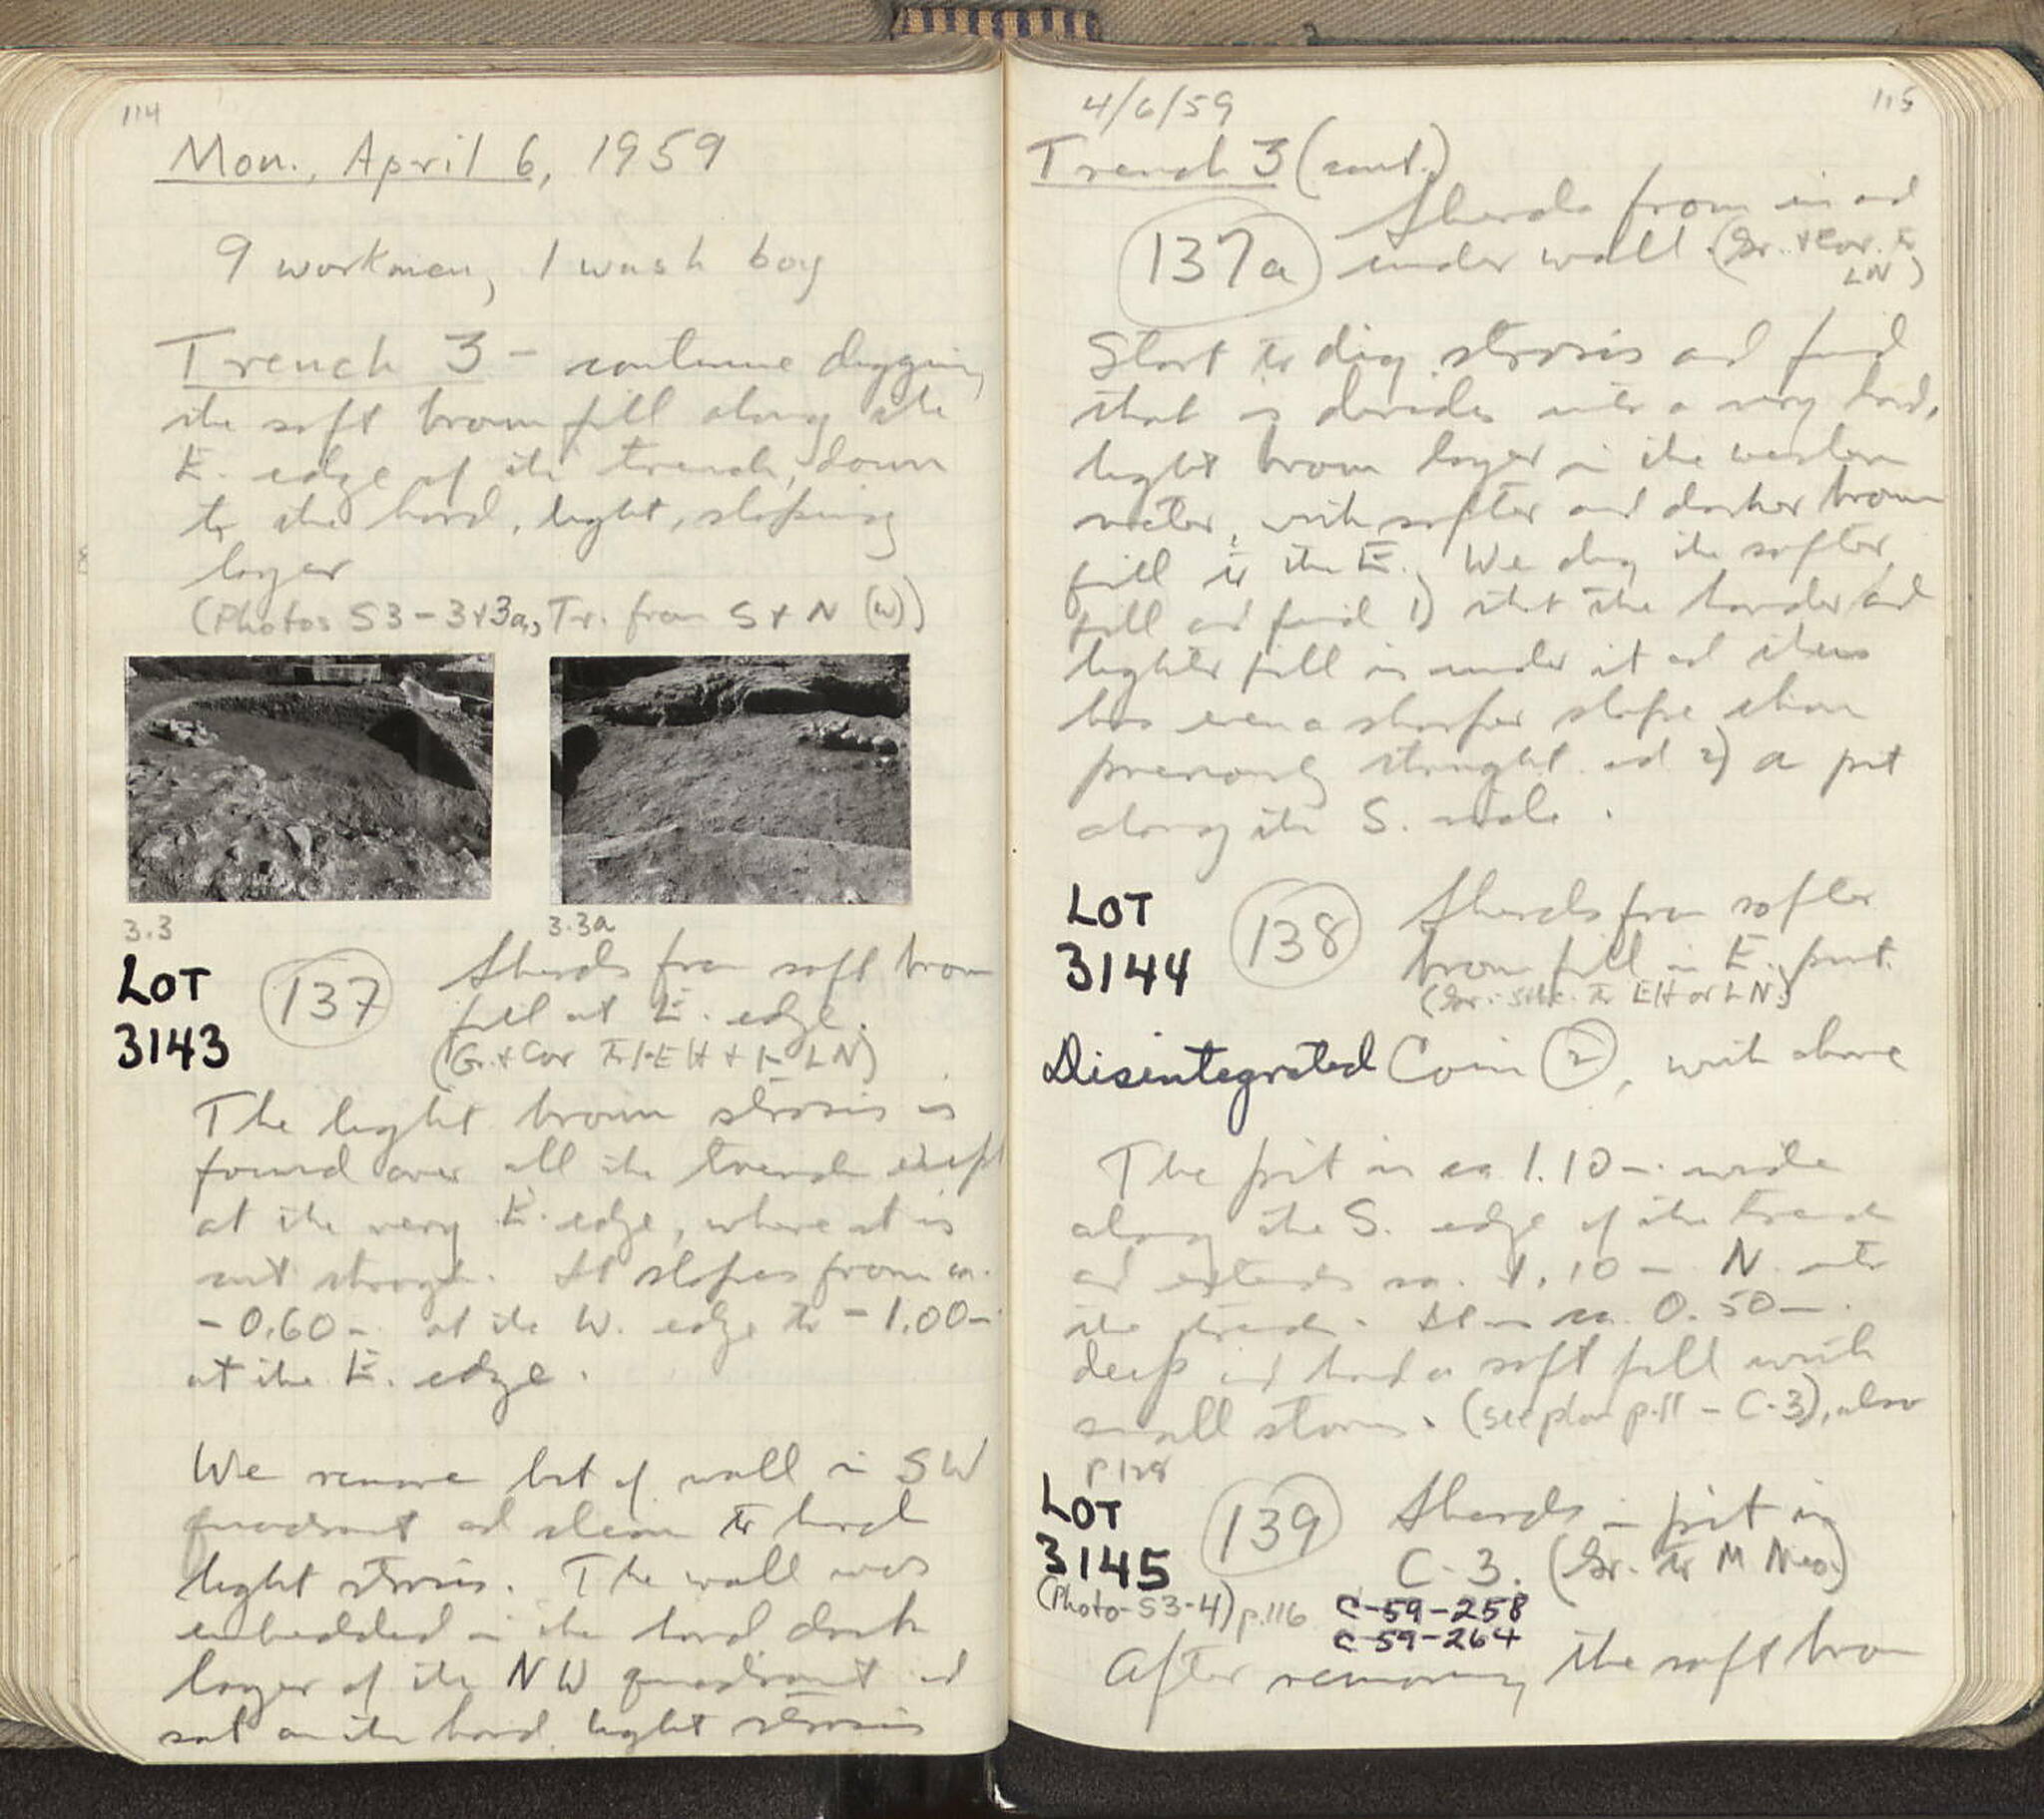 114
Mon., April 6, 1959
9 workmen, 1 wash boy
Trench 3 - continue digging
the soft brown fill along the
E. edge of the trench, down
to the hard, light, sloping
layer
(Photos S3-3+3a, Tr. from S + N (W))
3.3
3.3a
LOT
3143
137
Sherds from soft brown
fill at E. edge.
(G. + Cor to EH + LN)
The light brown strosis is
found over all the trench except
at the very E. edge, where it is
cut through. It slopes from ca.
-0.60 m. at the W. edge to -1.00 m
at the E. edge.
We remove bit of wall in SW
quadrant and clean to hard
light strosis. The wall was
embedded in the hard dark
layer of the NW quadrant and
sat on the hard light strosis
4/6/59
115
Trench 3 (cont.)
137a
Sherds from in and
under wall (Gr. + Cor. to
LN)
Start to dig strosis and find
that is divides into a very hard,
light brown layer in the western
meter, with softer and darker brown
fill to the E. We dig the softer
fill and find 1) that the harder and
lighter fill is under it and thus
has even a sharper slope than
previously thought and 2) a pit
along the S. side.
LOT
3144
138
Sherds from softer
brown fill in E. part.
(Gr. to EH or LN)
Disintegrated Coin 2, with above
The pit is ca 1.10 m. wide
along the S. edge of the trench
and extends ca. 1.10 m N. into
the trench. It is ca. 0.50 m.
deep and had a soft fill with
small stones. (see plan p. 11 - C-3), also
p 128
LOT
3145
139
Sherds in pit in
C-3. (Gr. to M Neo.)
(Photo-S3-4) p.116
C-59-258
C-59-264
After removing the soft brown